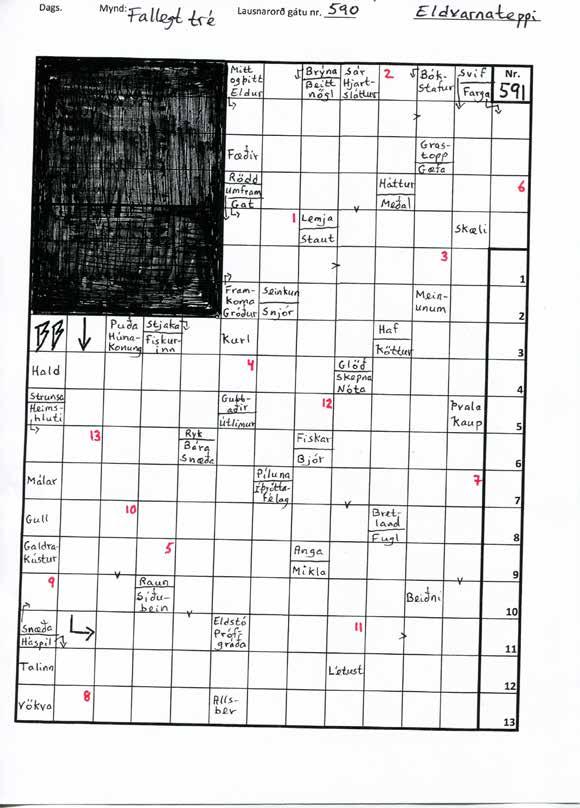 Dags. Mynd: Fallegt tré Lausnarorð gátu nr. 590 Eldvarnateppi
Mitt
ogþitt
Eldur
Brýna
Beitt
nögl
Sár
Hjart-
sláttur
2
Bók-
stafur
Svif
Farga
Nr.
591
Fæðir
Gras-
topp
Gæfa
Rödd
Umfram
Gat
Háttur
Meðal
6
1
Lemja
Staut
Skæli
3
1
Fram-
koma
Gróður
Seinkun
Snjór
Mein-
unum
2
BB
Puða
Húna-
Konung
Stjaka
Fiskur-
inn
Kurl
Haf
Köttur
3
Hald
4
Glöð
Skepna
Nóta
4
Strunsa
Heims-
hluti
Gubb-
aðir
Útlimur
12
Þvala
Kaup
5
13
Ryk
Bára
Snæða
Fiskar
Bjór
6
Málar
Píluna
Íþrótta-
félag
7
7
Gull
10
Bret-
land
Fugl
8
Galdra-
Kústur
5
Anga
Mikla
9
9
Raun
Síðu-
bein
Beiðni
10
Snæða
Háspil
Eldstó
Próf-
gráða
11
11
Talinn
Létust
12
Vökva
8
Alls-
ber
13